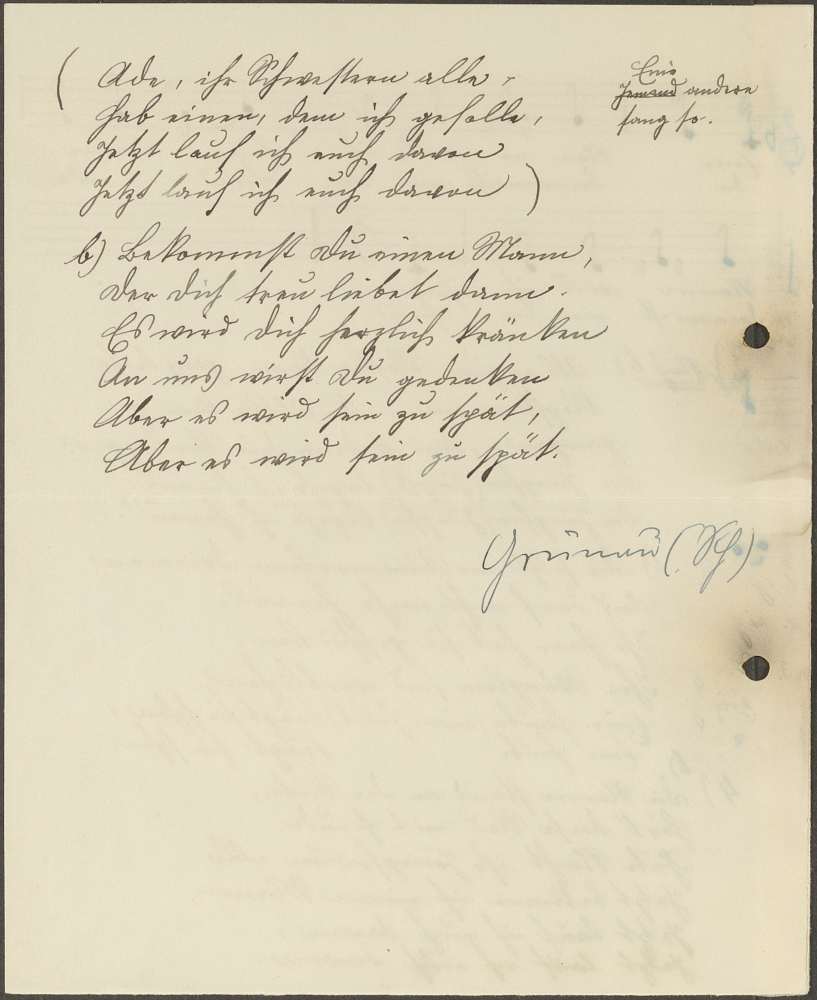 ( Ade, ihr Schwestern alle,
Hab einen, dem ich gefalle,
Jetzt lauf ich euch davon
Jetzt lauf ich euch davon )
Eine
Jemand andere
sang so.
b) Bekommst Du einen Mann,
Der Dich treu liebet dann.
Es wird Dich herzlich kränken
An uns wirst Du gedenken
Aber es wird sein zu spät,
Aber es wird sein zu spät.
Grünau (Sch)